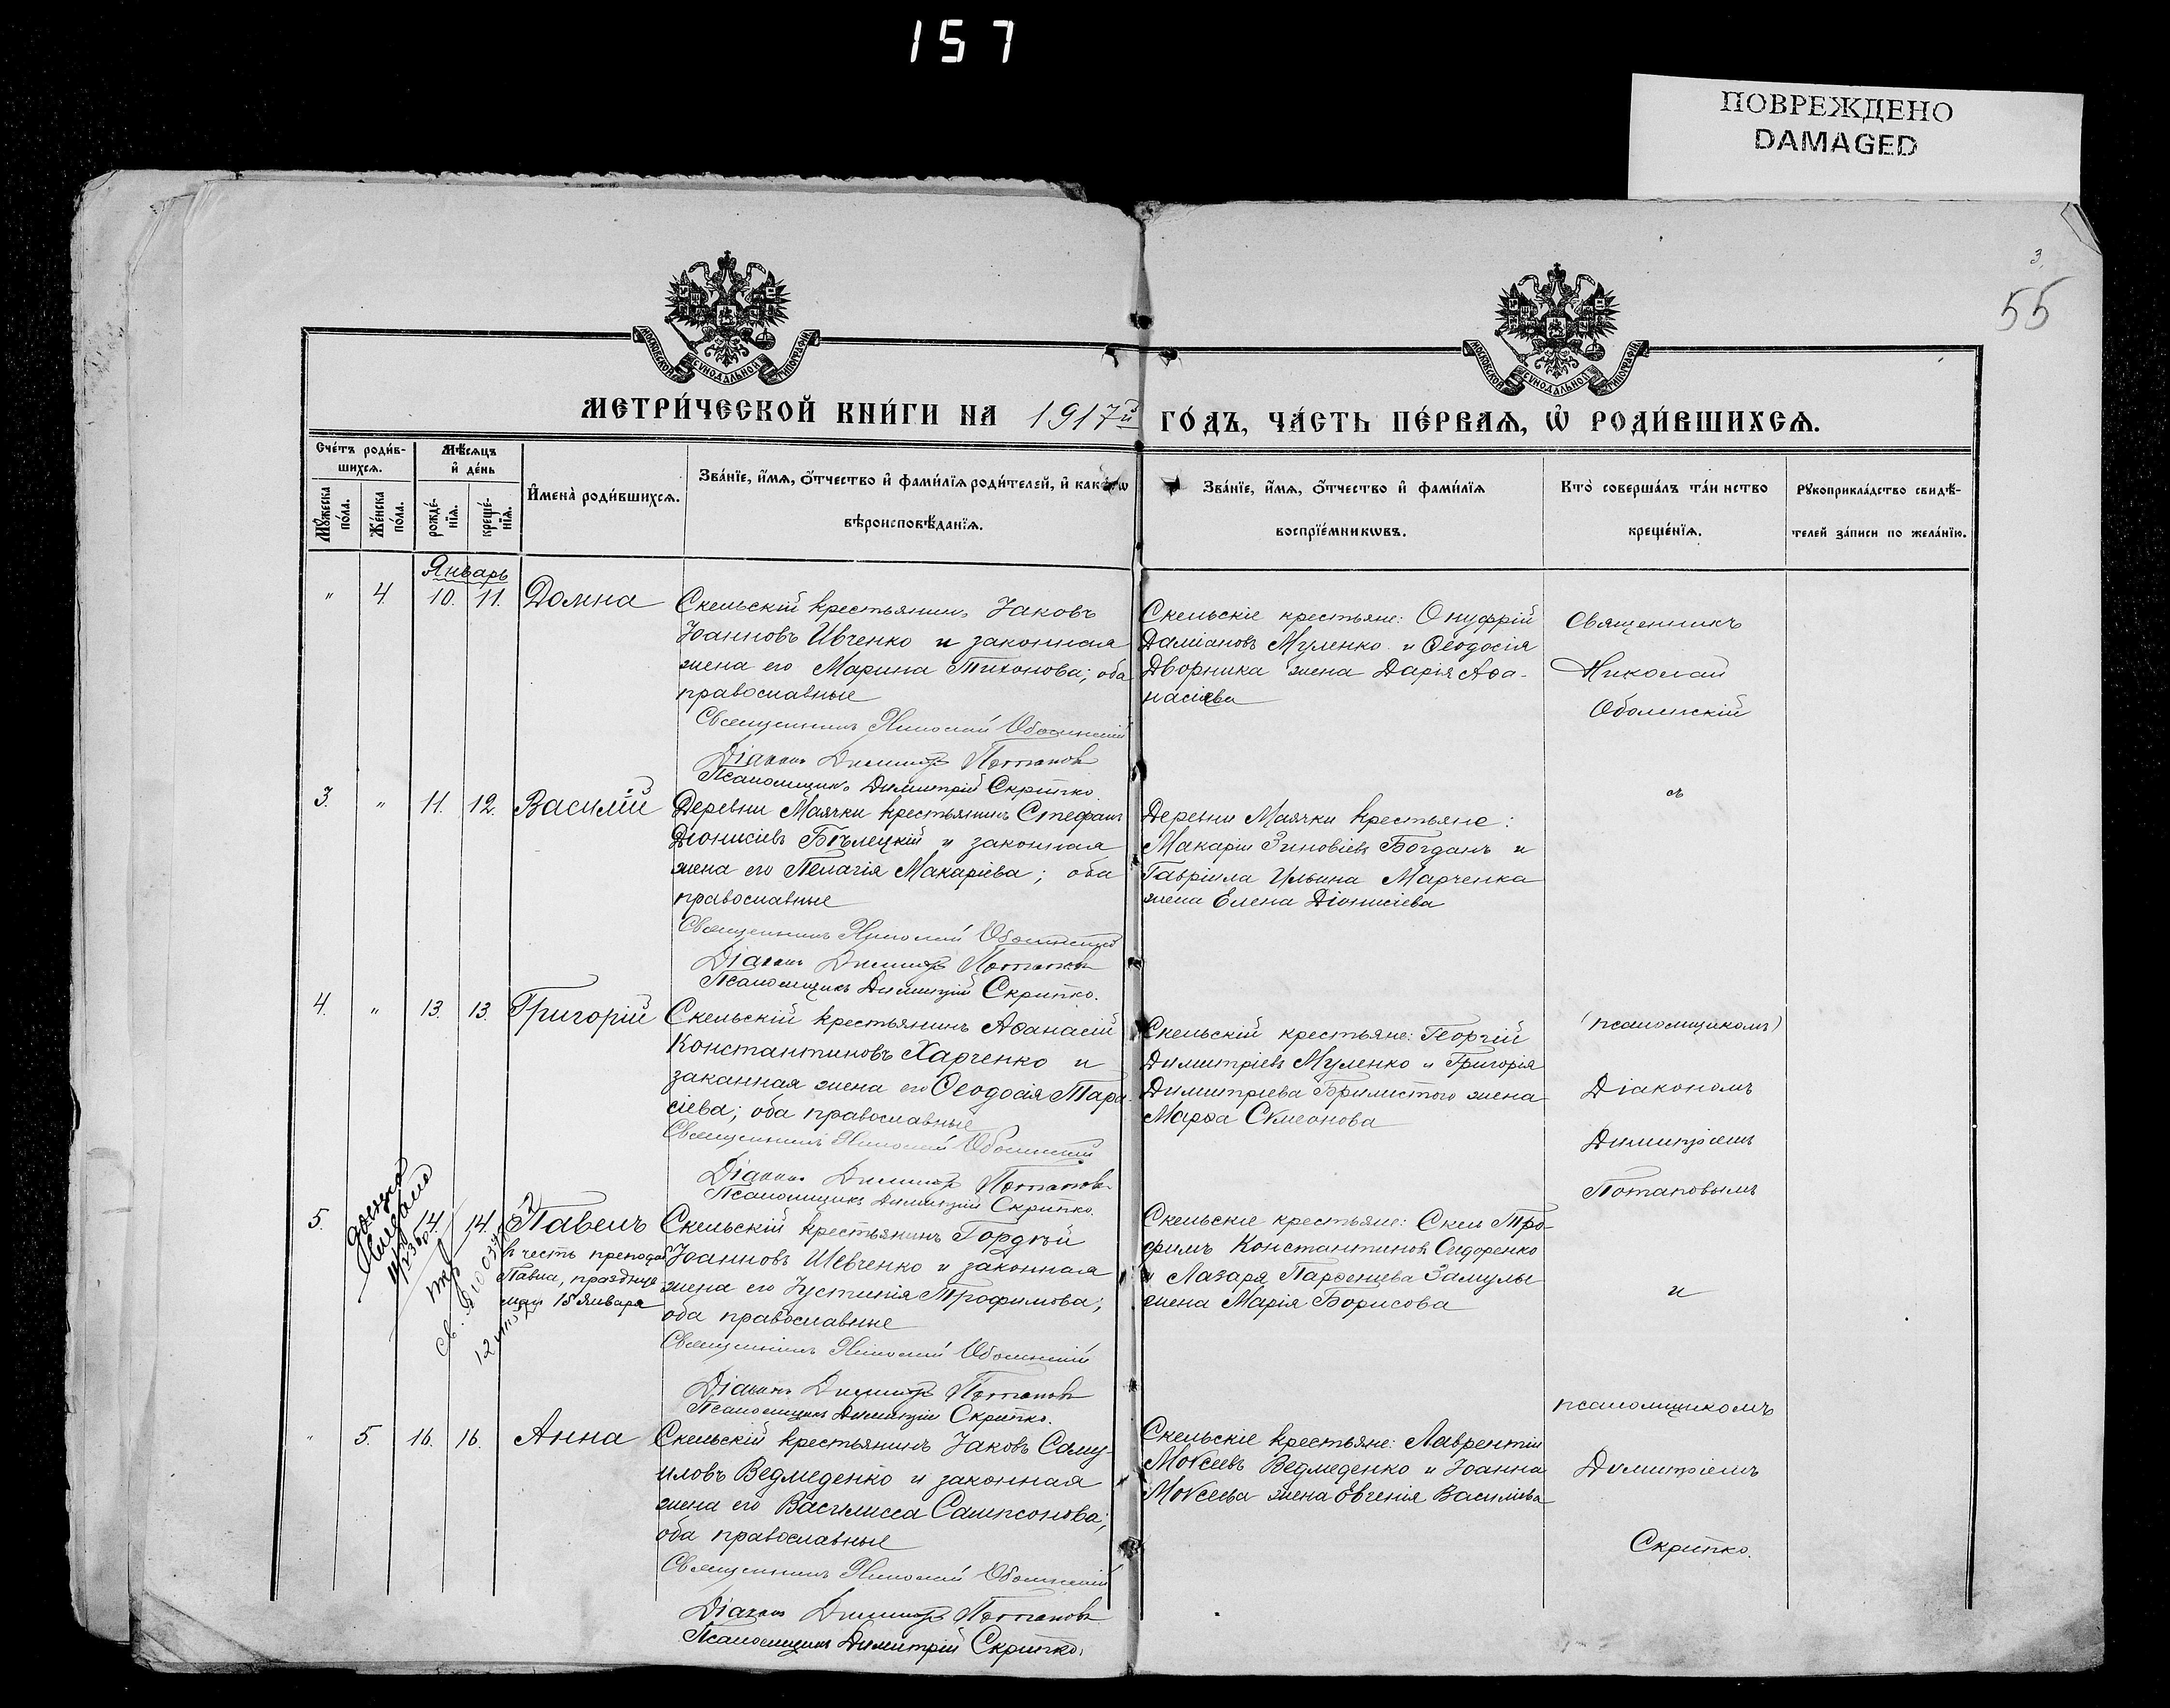 157
ПОВРЕЖДЕНО
DAMAGED
3
55
МОСКОВСКОЙ СУНОДАЛЬНОЙ ТИПОГРАФІИ
МОСКОВСКОЙ СУНОДАЛЬНОЙ ТИПОГРАФІИ
МЕТРИ́ЧЕСКОЙ КНИ́ГИ НА 1917й ГО́ДЪ, ЧА́СТЬ ПЕ́РВАѦ, Ѡ҆ РОДИ́ВШИХСѦ.
Сче́тъ роди́в-
шихсѧ.
Мѣ́сѧцъ
и҆ де́нь
Мꙋ́жеска по́ла.
Же́нска по́ла.
рожде́-
нїѧ.
креще́-
нїѧ.
И҆мена̀ роди́вшихсѧ.
Зва́нїе, и҆́мѧ, ѻ҆́тчество и҆ фами́лїѧ роди́телей, и҆ како́гѡ
вѣроисповѣ́данїѧ.
Зва́нїе, и҆́мѧ, ѻ҆́тчество и҆ фами́лїѧ
воспрїе́мникѡвъ.
Кто̀ соверша́лъ та́инство
креще́нїѧ.
Рꙋкоприкла́дство свидѣ́-
телей за́писи по жела́нїю.
Январь
" 4. 10. 11. Домна
Скельскій крестьянинъ Іаковъ
Іоанновъ Ивченко и законная
жена его Марина Тихонова; оба
православные
Священникъ Николай Оболенскій
Діаконъ Димитр Потапов
Псаломщикъ Димитрій Скрипко.
Скельскіе крестьяне: Онуфрій
Даміановъ Муленко и Ѳеодосія
Дворника жена Дарія Аѳа-
насіева
Священникъ
Николай
Оболенскій
съ
3. " 11. 12. Василій
Деревни Маячки крестьянинъ Стефанъ
Діонисіевъ Бѣлецкій и законная
жена его Пелагія Макаріева; оба
православные
Священникъ Николай Оболенскій
Діаконъ Димитр Потапов
Псаломщикъ Димитрій Скрипко.
Деревни Маячки крестьяне:
Макарій Зиновіевъ Богданъ и
Гавріила Ильина Марченка
жена Елена Діонисіева
4. " 13. 13. Григорій
Скельскій крестьянинъ Аѳанасій
Константиновъ Харченко и
законная жена его Ѳеодосія Тара-
сіева; оба православные
Священникъ Николай Оболенскій
Діаконъ Димитр Потапов
Псаломщикъ Димитрій Скрипко.
Скельскій крестьяне: Георгій
Димитріевъ Муленко и Григорія
Димитріева Бримистого жена
Марѳа Сѵмеонова
(псаломщикомъ)
Діакономъ
Димитріемъ
Потаповымъ
и
5. 14 14. Павелъ
въ честь преподоб
Павла, празднуе
маго 15 Января
Скельскій крестьянинъ Гордѣй
Іоанновъ Шевченко и законная
жена его Іустинія Трофимова;
оба православные
Священникъ Николай Оболенскій
Діаконъ Димитр Потапов
Псаломщикъ Димитрій Скрипко.
Скельскіе крестьяне: Скел Тро-
фимъ Константиновъ Сидоренко
и Лазаря Парѳенцева Замулы
жена Марія Борисова
псаломщикомъ
Димитріемъ
Скрипко.
" 5. 16. 16. Анна
Скельскій крестьянинъ Іаковъ Саму-
иловъ Ведмеденко и законная
жена его Василисса Сампсонова;
оба православные
Священникъ Николай Оболенскій
Діаконъ Димитр Потапов
Псаломщикъ Димитрій Скрипко.
Скельскіе крестьяне: Лаврентій
Моѵсеевъ Ведмеденко и Іоанна
Моѵсеева жена Евгенія Васильева